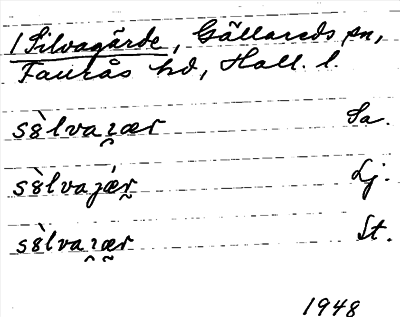 1 Silvagärde, Gällareds sn,
Faurås hd, Hall. l.
sèlvaɪ̯ær Sa.
sèlvajǽr Lj.
sèlvaɪ̯ær St.
1948